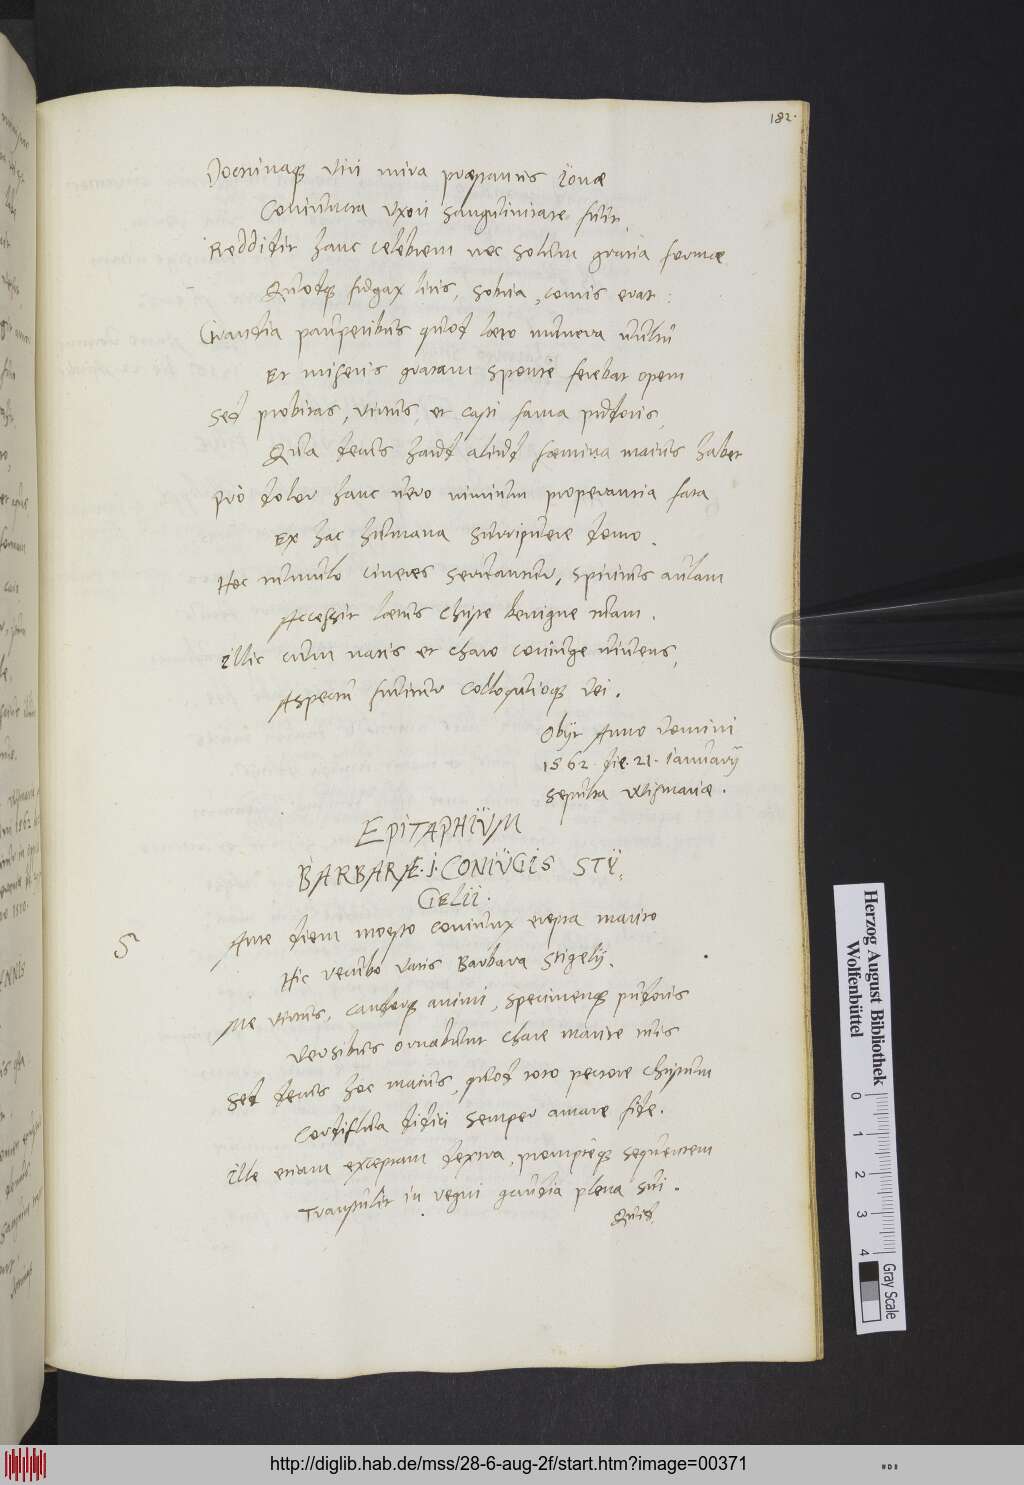 182.
Doctrinaq; viri mira præstantis Ionæ
Coniuncta uxori sanguinitate fuit.
Reddidit hanc celebrem nec solum gratia formæ
Quodq; fugax litis, sobria, comis erat:
Grandia pauperibus quod læto munera vultu
Et miseris gratam sponte ferebat opem
Sed probitas, virtus, et casti fama pudoris,
Qua decus haud aliud fœmina maius habet
Pro dolor hanc vero nimium properantia fata
Ex hac humana surripuere domo.
Hoc tumulo cineres servantur, spiritus aulam
Accessit lætus Christe benigne tuam.
Illic cum natis et charo coniuge vivens,
Aspectu fruitur colloquioq; Dei.
Obijt Anno Domini
1562. die. 21. Ianuarij
sepulta Wismariæ.
EPITAPHIUM
BARBARÆ. I. CONIUGIS STI,
GELII.
Ante diem moesto coniunx erepta marito
Hic recubo vatis Barbara Stigelij.
Me virtus, candorq; animi, specimenq; pudoris
Versibus ornabunt chare marite tuis
Sed decus hoc maius, quod toto pectore Christum
Cordiflua didici semper amare fide.
Ille etiam exceptam dextra, prompteq; sequentem
Transtulit in regni gaudia plena sui.
Quid
S
Herzog August Bibliothek
Wolfenbüttel
0 1 2 3 4
Gray Scale
http://diglib.hab.de/mss/28-6-aug-2f/start.htm?image=00371